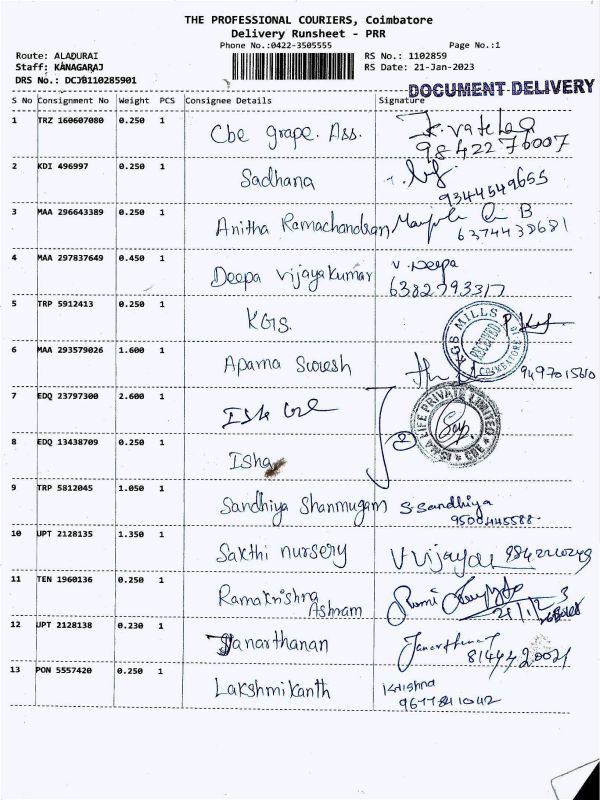 THE PROFESSIONAL COURIERS, Coimbatore
Delivery Runsheet - PRR
Phone No.:0422-3505555 Page No.:1
Route: ALADURAI RS No.: 1102859
Staff: KANAGARAJ RS Date: 21-Jan-2023
DRS No.: DCJB110285901
DOCUMENT DELIVERY
S No Consignment No Weight PCS Consignee Details Signature
1 TRZ 160607080 0.250 1 Cbe grape. Ass.
9842276007
2 KDI 496997 0.250 1 Sadhana
9344549655
3 MAA 296643389 0.250 1 Anitha Ramachandran
6374439681
4 MAA 297837649 0.450 1 Deepa Vijayakumar V. Deepa
6382793317
5 TRP 5912413 0.250 1 KGS.
KGS MILLS RECEIVED COIMBATORE
6 MAA 293579026 1.600 1 Aparna Suresh
9497015610
7 EDQ 23797300 2.600 1
ISHA LIFE PRIVATE LIMITED CBE
2
8 EDQ 13438709 0.250 1 Isha
9 TRP 5812045 1.050 1 Sandhiya Shanmugam S. Sandhiya
9500445588
10 UPT 2128135 1.350 1 Sakthi nursery
11 TEN 1960136 0.250 1 Ramakrishna
Ashram
12 UPT 2128138 0.230 1 Janarthanan
8144420021
13 PON 5557420 0.250 1 Lakshmikanth Krishna
9677841042